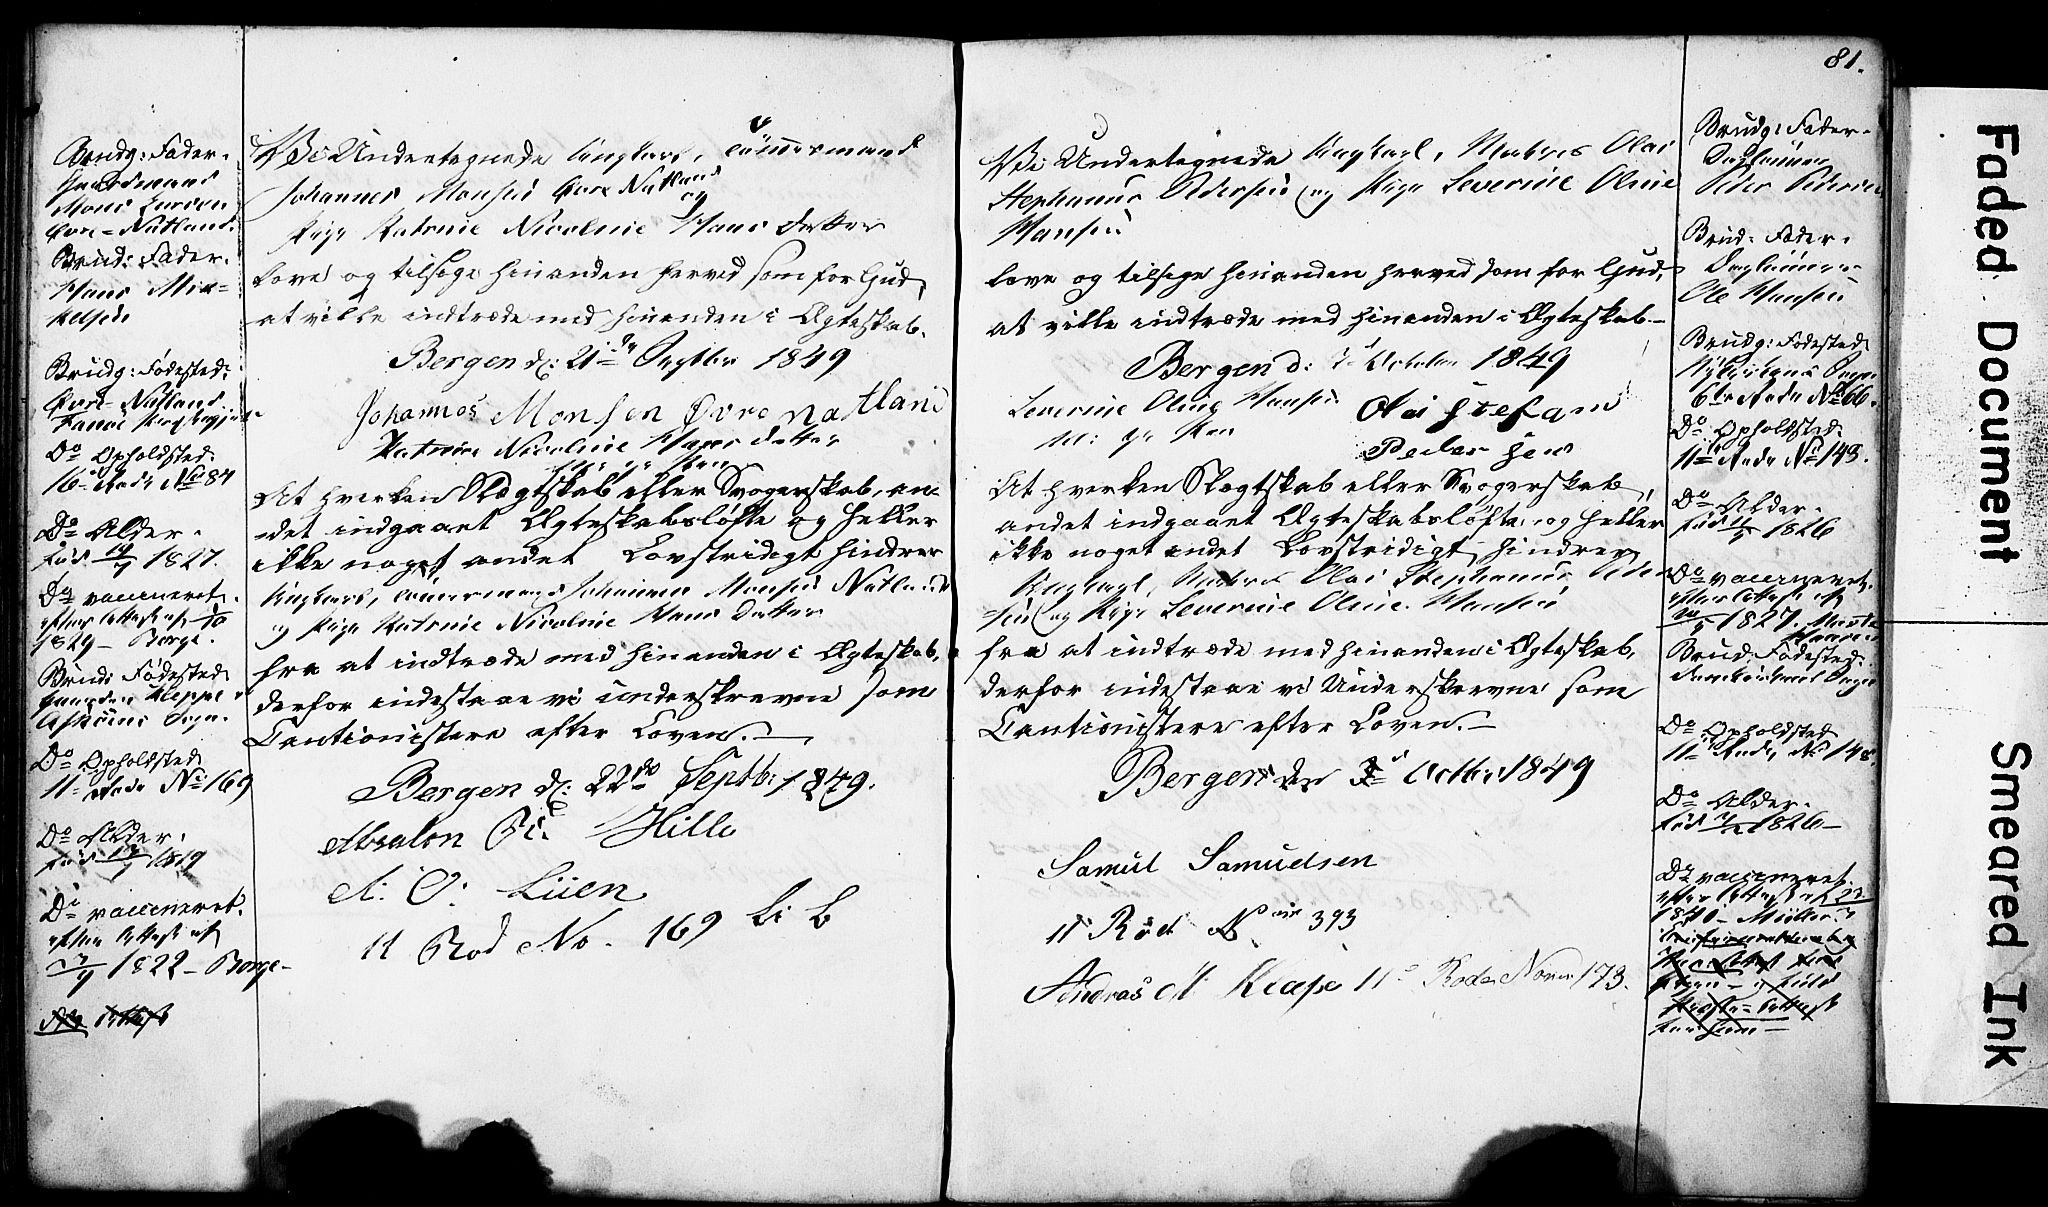 Brudg: Fader.
Gaardmand
Mons
Øvre-Natland.
Brud: Fader.
Hans Mik-
kelsen
Brudg: Fødested:
Øvre-Natland
Fanøe
Do Opholdsted:
16de Rode No 84
Do Alder.
fød 1827.
Do vaccineret.
efter Attest af
1829 - Borge.
Brud: Fødested
Gaarden Kleppe
Askøens Sogn.
Do Opholdsted
11te Rode No 169
Do Alder.
fød 1819
Do vaccineret.
efter Attest af
1822 - Borge-
Vi Undertegnede Ungkarl, Tømmermand
Johannes Monsen Øvre Natland
og
Pige Katrine Nicoline Hans datter
love og tilsige hinanden herved som for Gud,
at ville indtræde med hinanden i Ægteskab.
Bergen d: 21de Septbr 1849
Johannes Monsen Øvre Natland
Katrine Nicoline Hans datter
At hverken Slægtskab eller Svogerskab, an-
det indgaaet Ægteskabsløfte og heller
ikke noget andet Lovstridigt hindrer
Ungkarl, Tømmermand Johannes Monsen Natland
og Pige Katrine Nicoline Hans Datter
fra at indtræde med hinanden i Ægteskab,
derfor indestaae vi underskrevne som
Cautionistere efter Loven.
Bergen d: 22de Septbr 1849.
Absalon Hille
A: O: Lüen
11 Rod No. 169 Li B
81.
Vi Undertegnede Ungkarl, Matros Olai
Stephanus Pedersen og Pige Severine Oline
Hansen
love og tilsige hinanden herved som for Gud,
at ville indtræde med hinanden i Ægteskab-
Bergen d: October 1849
Severine Oline Hansen Olai Stefan
m: p: Pen Peder sen
At hverken Slægtskab eller Svogerskab,
andet indgaaet Ægteskabsløfte, og heller
ikke noget andet Lovstridigt, hindrer
Ungkarl, Matros Olai Stephanus Peder
sen og Pige Severine Oline Hansen
fra at indtræde med hinanden i Ægteskab,
derfor indestaae vi Underskrevne som
Cautionistere efter Loven.-
Bergen den Octbr 1849
Samul Samuelsen
11 Rod 393
Andras M: Klape 11 Rode 173.
Brudg: Fader-
Peder Pedersen
Brud: Fader.
Ole Hansen
Brudg: Fødested
6te Rode No 66.
Do Opholdsted:
11te Rode No 148.
Do Alder.
fød 1826
Do vaccineret.
efter Attest af
1827.
Brud: Fødested:
Domkirkens Sogn
Do Opholdsted
11te Rode No 148
Do Alder.
fød 1826-
Do vaccineret.
efter Attest af
Faded Document
Smeared Ink